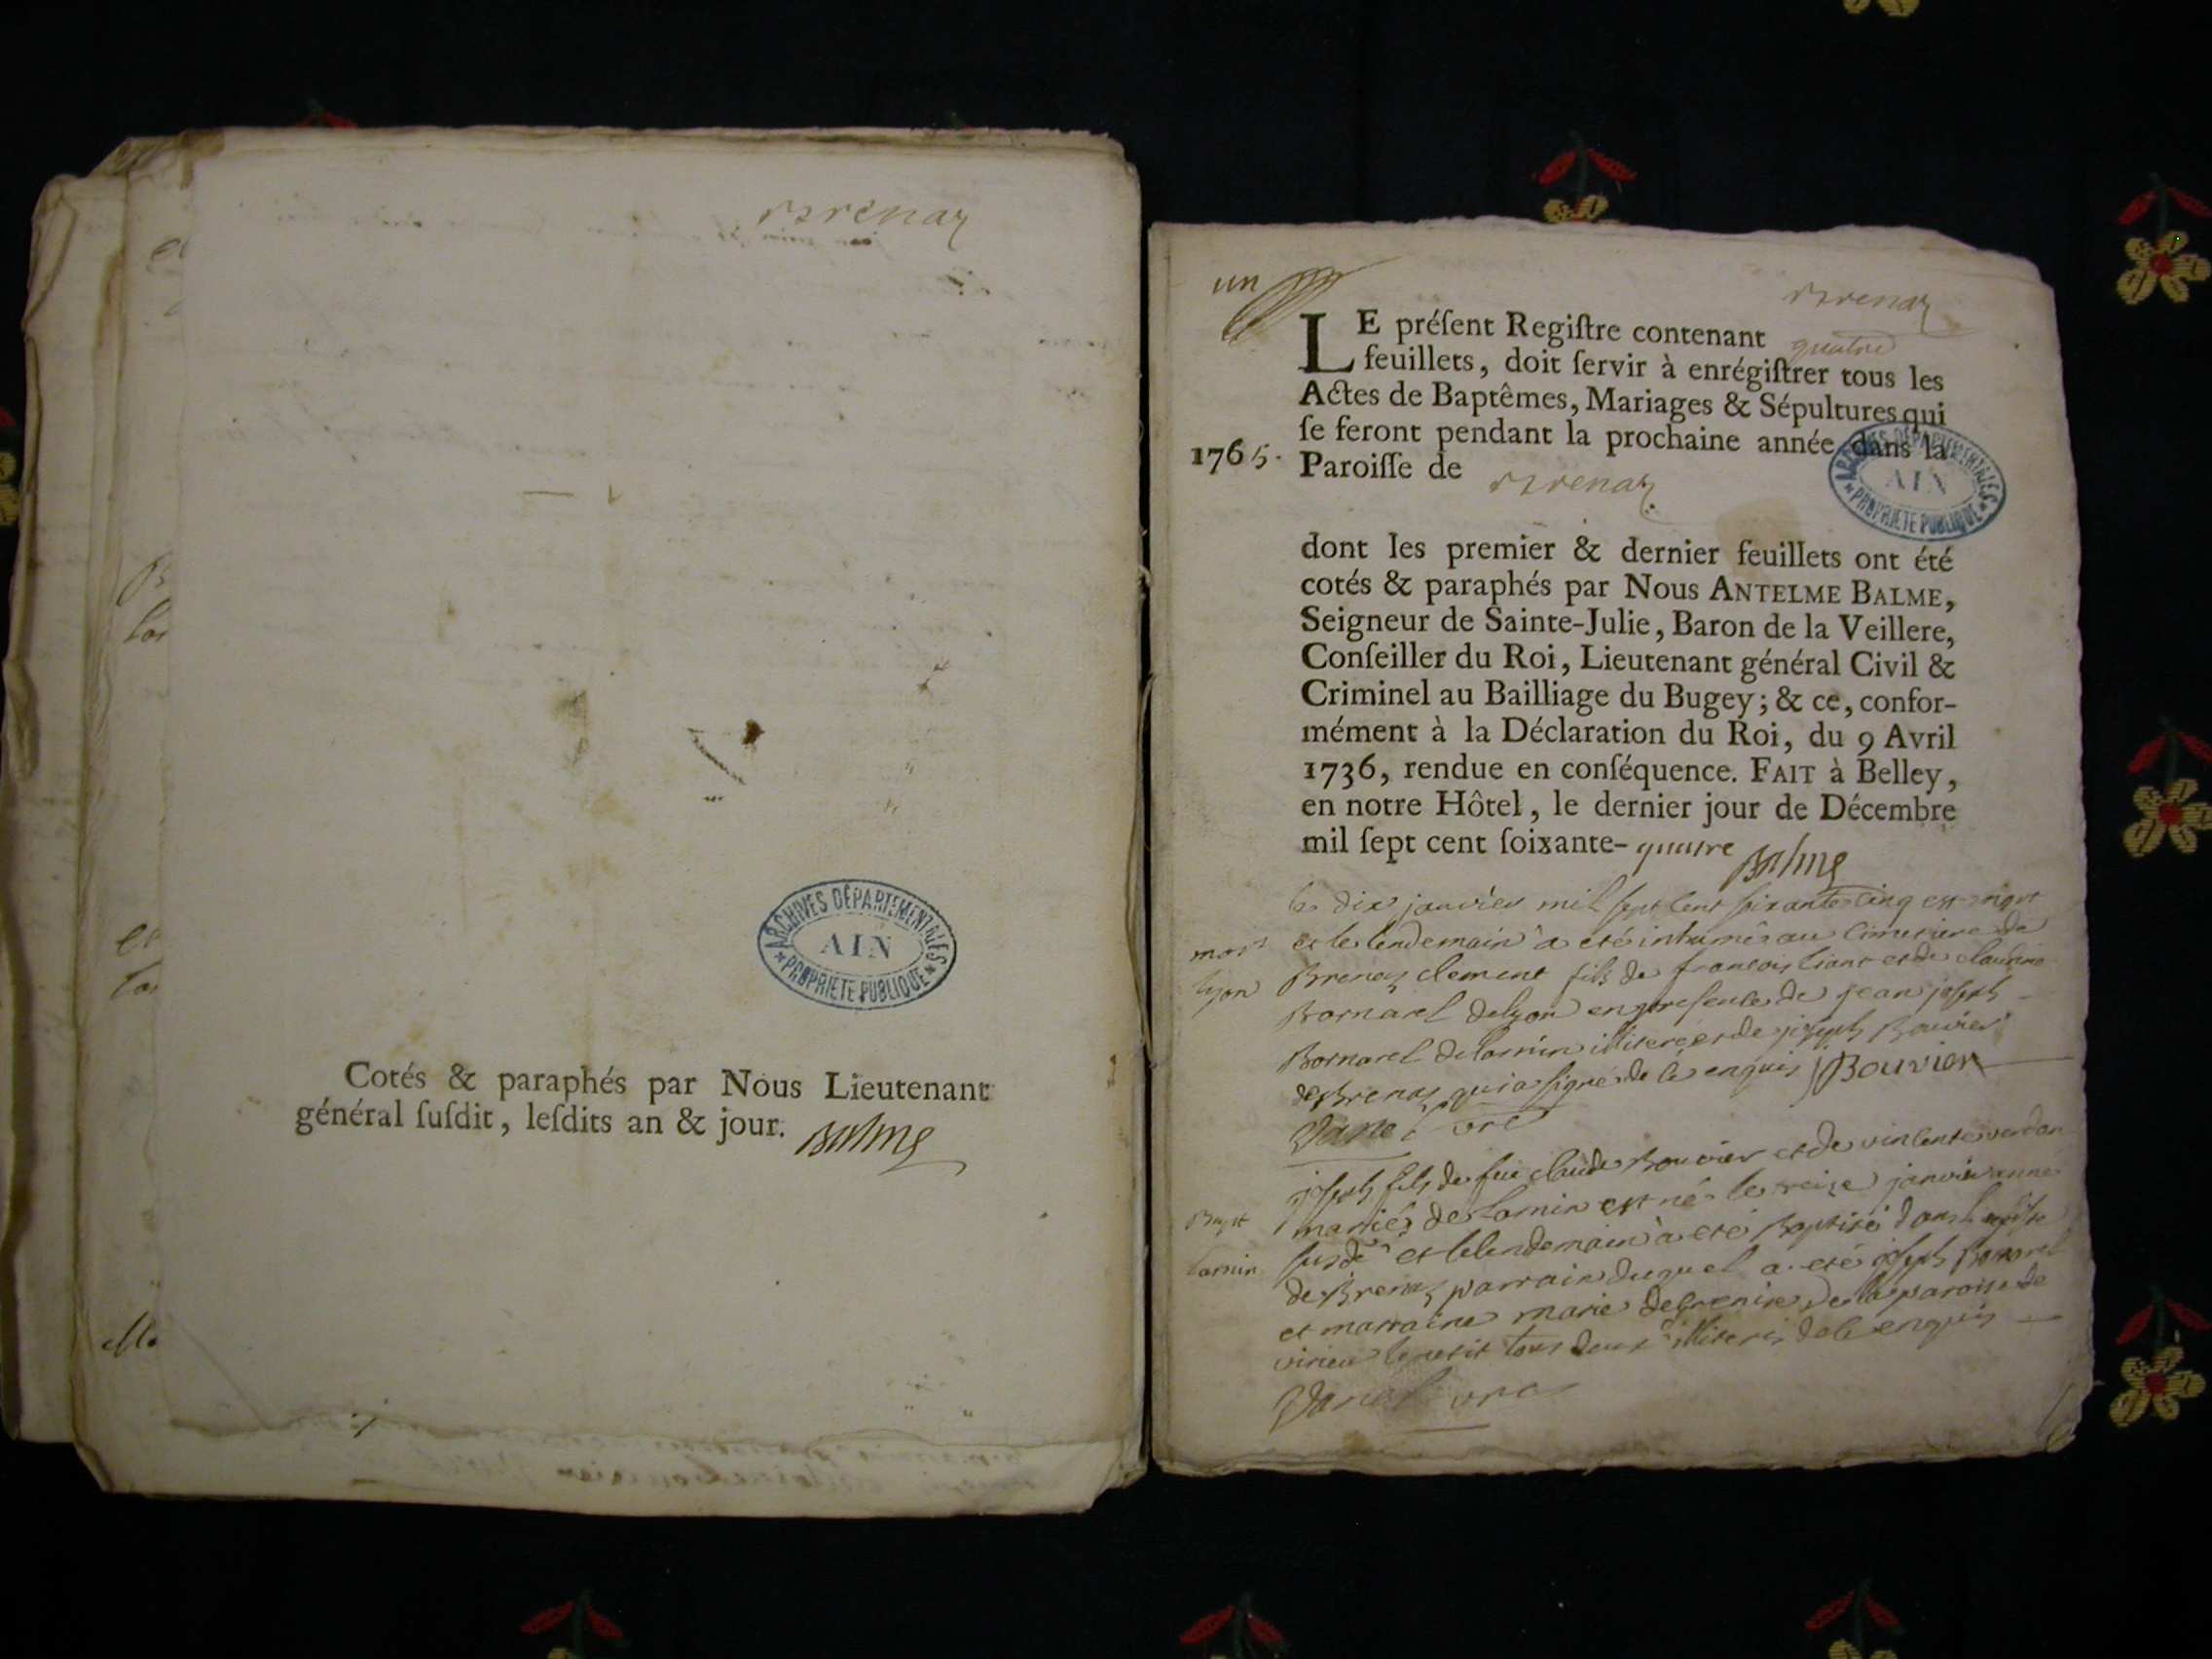 Brenaz
ARCHIVES DÉPARTEMENTALES
AIN
* PROPRIETE PUBLIQUE *
Cotés & paraphés par Nous Lieutenant
général ſuſdit, leſdits an & jour. Balme
un
Brenaz
LE préſent Regiſtre contenant quatre
feuillets, doit ſervir à enrégiſtrer tous les
Actes de Baptêmes, Mariages & Sépultures qui
ſe feront pendant la prochaine année dans la
1765. Paroiſſe de Brenaz
ARCHIVES DÉPARTEMENTALES
AIN
* PROPRIETE PUBLIQUE *
dont les premier & dernier feuillets ont été
cotés & paraphés par Nous ANTELME BALME,
Seigneur de Sainte-Julie, Baron de la Veillere,
Conſeiller du Roi, Lieutenant général Civil &
Criminel au Bailliage du Bugey; & ce, confor-
mément à la Déclaration du Roi, du 9 Avril
1736, rendue en conſéquence. FAIT à Belley,
en notre Hôtel, le dernier jour de Décembre
mil ſept cent ſoixante-quatre Balme
le dix janvier mil sept cent soixante cinq est mort
mort et le lendemain a eté inhumé au cimetiere de
lyon Brenaz clement fils de francois et de claudine
Bornarel de lyon en presence de jean joseph
Bornarel de lomin illiteré et de joseph Bouvier
de Brenaz qui a signé de ce enquis J Bouvier
joseph fils de feu claude Bouvier et de vincente
Bapt mariés de lomin est né le treize janvier année
lomin susd et le lendemain à eté Baptisé dans l eglise
de Brenaz parrain duquel a eté joseph Bornarel
et marraine marie de la paroisse de
virieu le petit tous deux illiteris de ce enquis